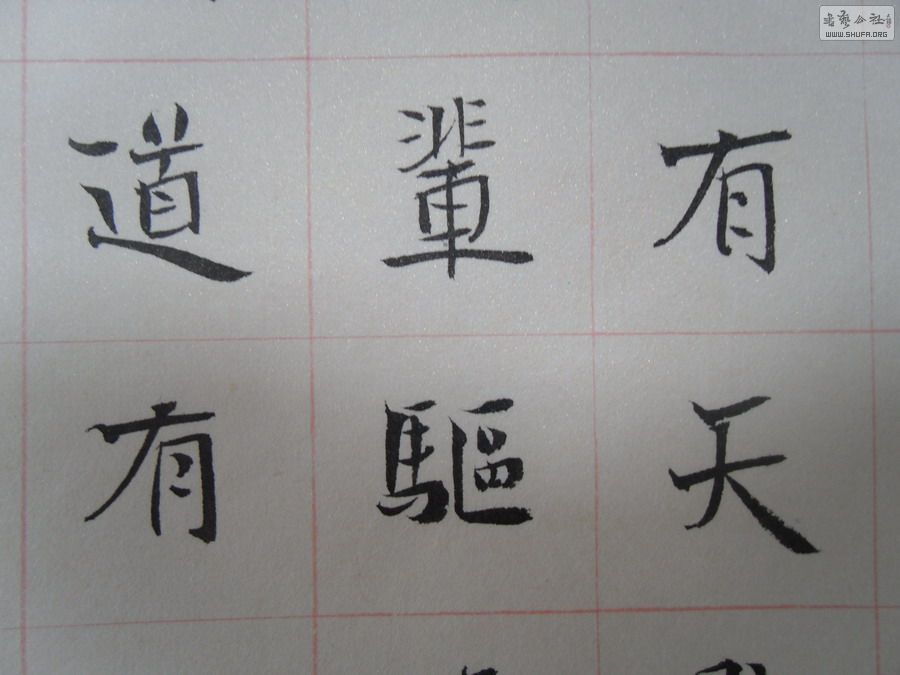 有天
輩驅
道有
書藝公社
WWW.SHUFA.ORG